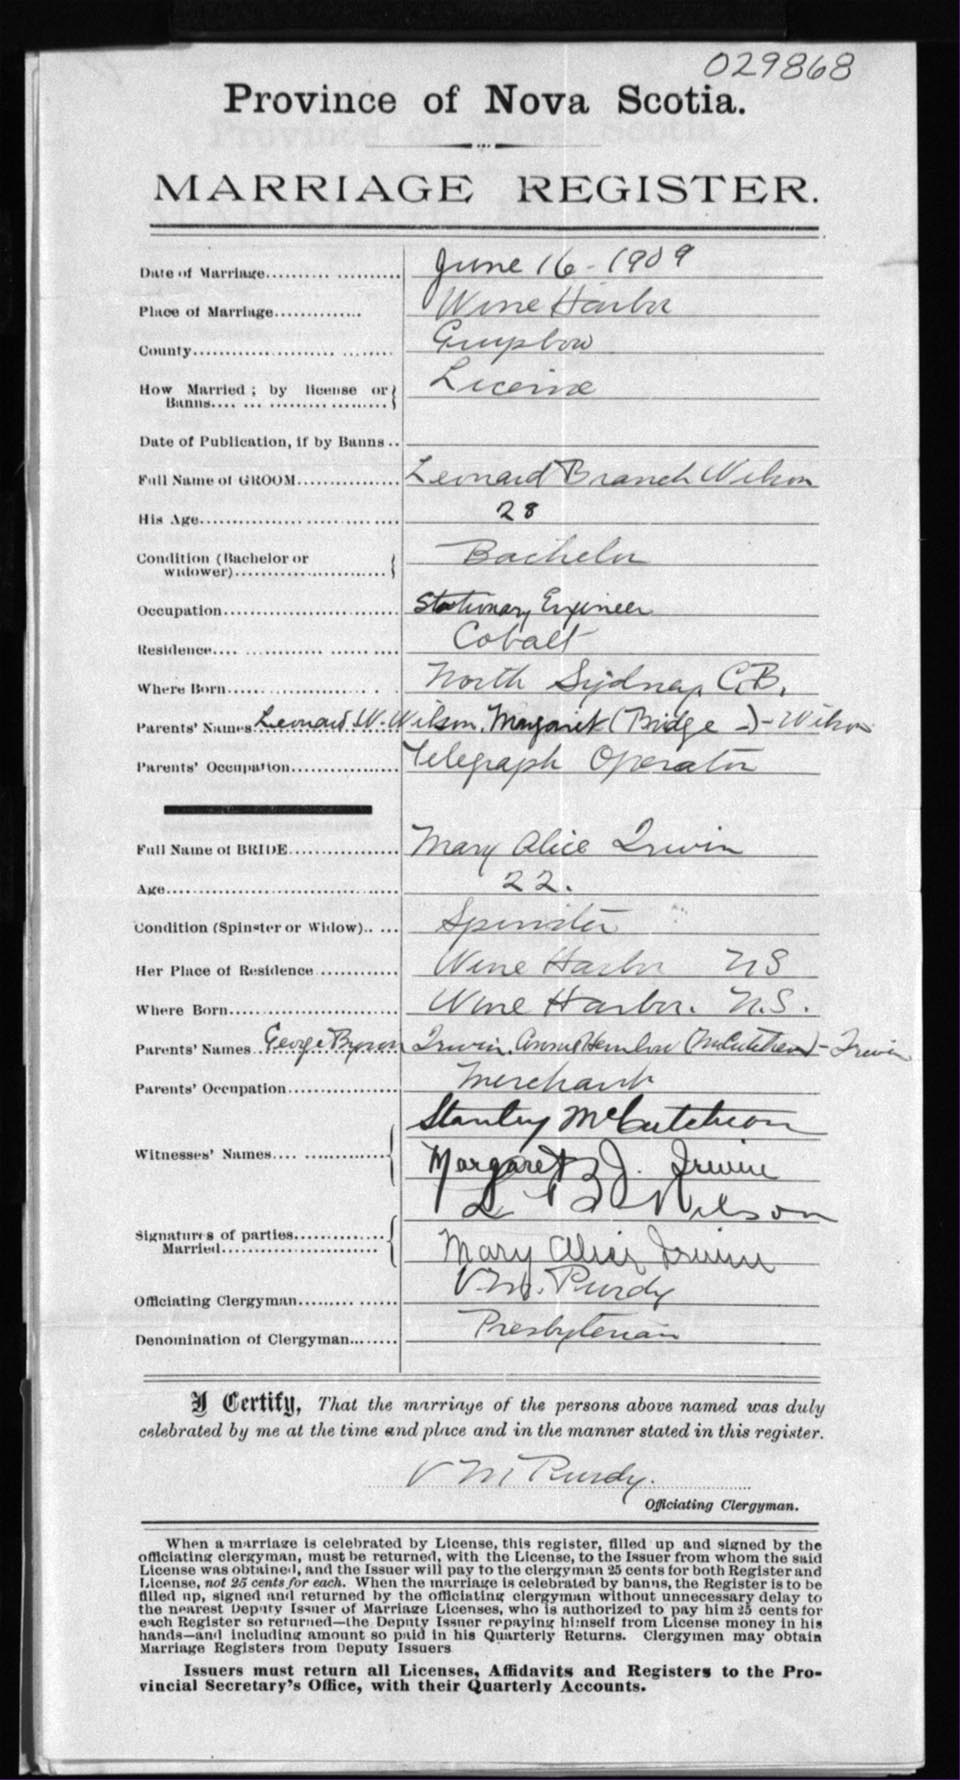 029868
Province of Nova Scotia.
MARRIAGE REGISTER.
Date of Marriage................... June 16 - 1909
Place of Marriage............. Wine Harbor
County.............................. Guysboro
How Married; by license or License
Banns....................
Date of Publication, if by Banns..
Full Name of GROOM............... Leonard Branch Wilson
His Age............................. 28
Condition (Bachelor or Bachelor
widower)........................
Occupation.......................... Stationary Engineer
Residence........................... Cobalt
Where Born....................... North Sydney C.B.
Parents' Names Leonard W. Wilson, Margaret (Bridge -)- Wilson
Parents' Occupation................ Telegraph Operator
Full Name of BRIDE................ Mary Alice Irwin
Age.................................. 22.
Condition (Spinster or Widow)..... Spinster
Her Place of Residence............ Wine Harbor NS
Where Born........................ Wine Harbor. N.S.
Parents' Names George Byron Irwin, (McCutcheon)- Irwin
Parents' Occupation................ Merchant
Stanley McCutcheon
Witnesses' Names.................. Margaret J. Irwin
L B Wilson
Signatures of parties..............
Married....................... Mary Alice Irwin
Officiating Clergyman............... V. M. Purdy
Denomination of Clergyman........ Presbyterian
I Certify, That the marriage of the persons above named was duly
celebrated by me at the time and place and in the manner stated in this register.
V M Purdy.
Officiating Clergyman.
When a marriage is celebrated by License, this register, filled up and signed by the
officiating clergyman, must be returned, with the License, to the Issuer from whom the said
License was obtained, and the Issuer will pay to the clergyman 25 cents for both Register and
License, not 25 cents for each. When the marriage is celebrated by banns, the Register is to be
filled up, signed and returned by the officiating clergyman without unnecessary delay to
the nearest Deputy Issuer of Marriage Licenses, who is authorized to pay him 25 cents for
each Register so returned—the Deputy Issuer repaying himself from License money in his
hands—and including amount so paid in his Quarterly Returns. Clergymen may obtain
Marriage Registers from Deputy Issuers
Issuers must return all Licenses, Affidavits and Registers to the Pro-
vincial Secretary's Office, with their Quarterly Accounts.